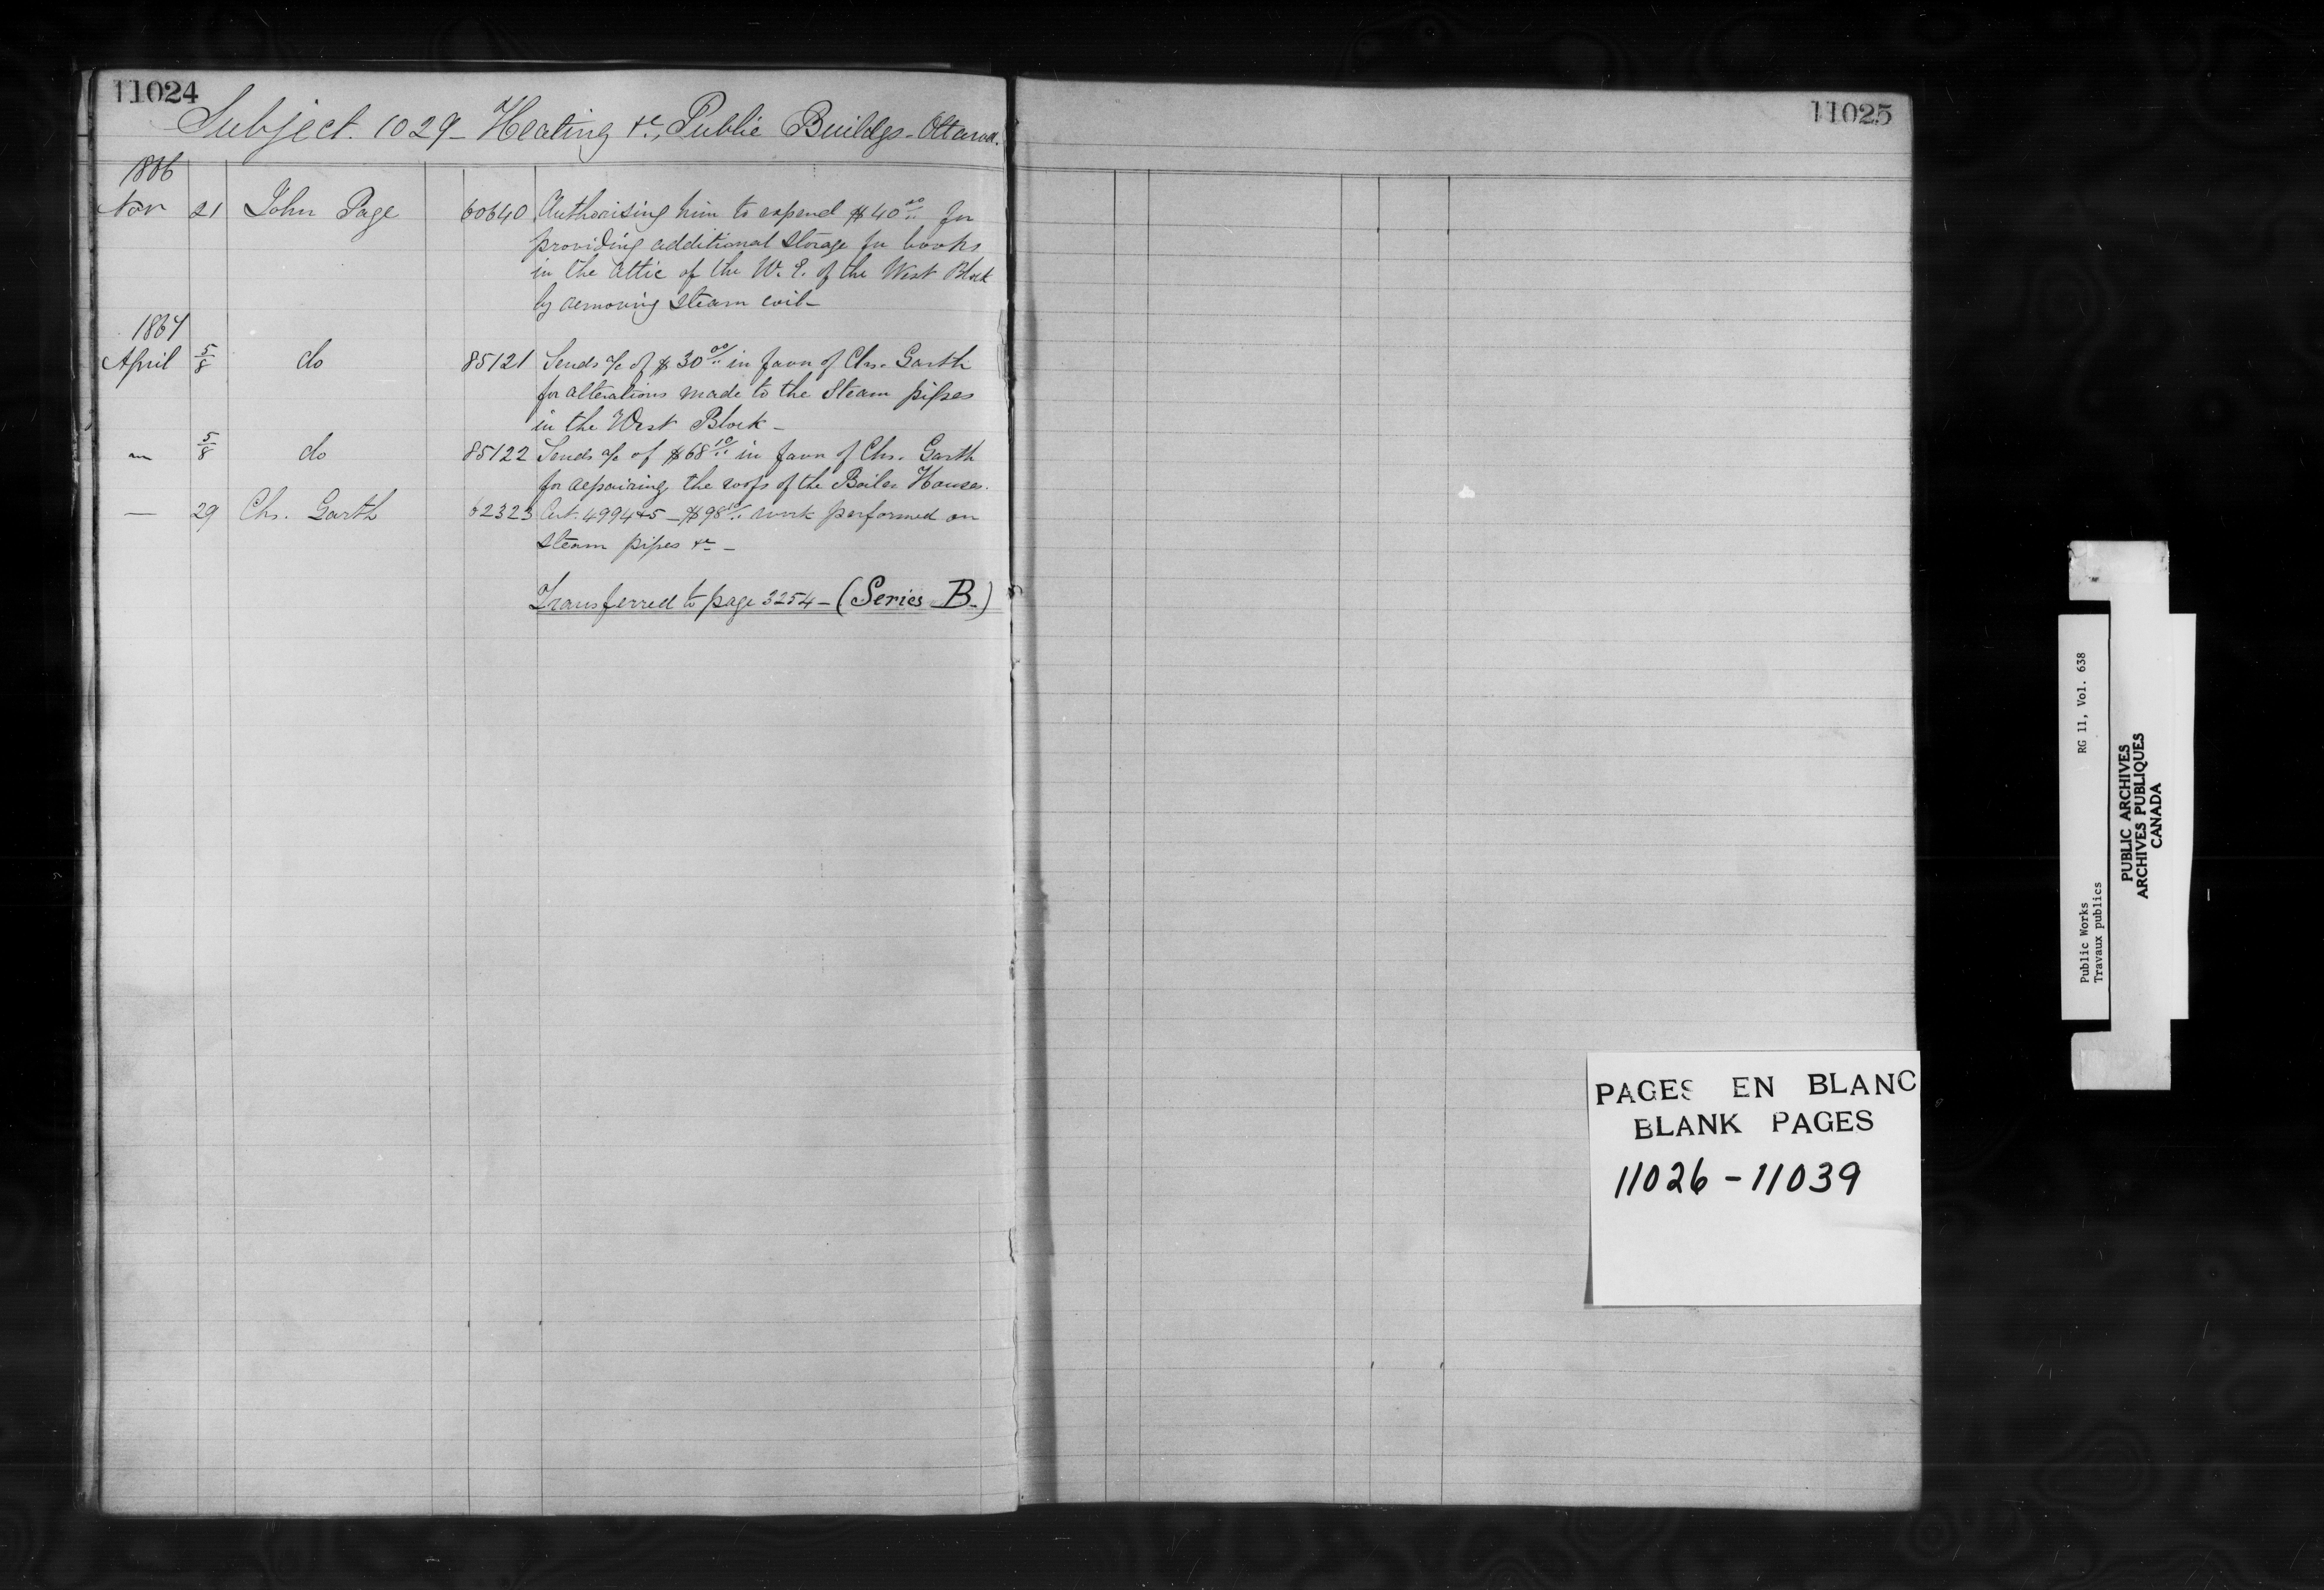 11024
Subject. 1029 - Heating &c, Public Buildgs - Ottawa.
1866
Nov 21 John Page 60640 Authorising him to expend $40.00 for
providing additional storage for books
in the attic of the W. E. of the West Block
by removing steam coil -
1867
April 5/8 do 85121 Sends a/c of $30.00 in favor of Chs. Garth
for alterations made to the Steam pipes
in the West Block -
" 5/8 do 85122 Sends a/c of $68.10 in favor of Chs. Garth
for repairing the roofs of the Boiler Houses.
— 29 Chs. Garth 62323 Cert. 4994&5 - $98.10 work performed on
steam pipes &c -
Transferred to page 3254 - (Series B.)
11025
PAGES EN BLANC
BLANK PAGES
11026 - 11039
Public Works RG 11, Vol. 638
Travaux publics
PUBLIC ARCHIVES
ARCHIVES PUBLIQUES
CANADA